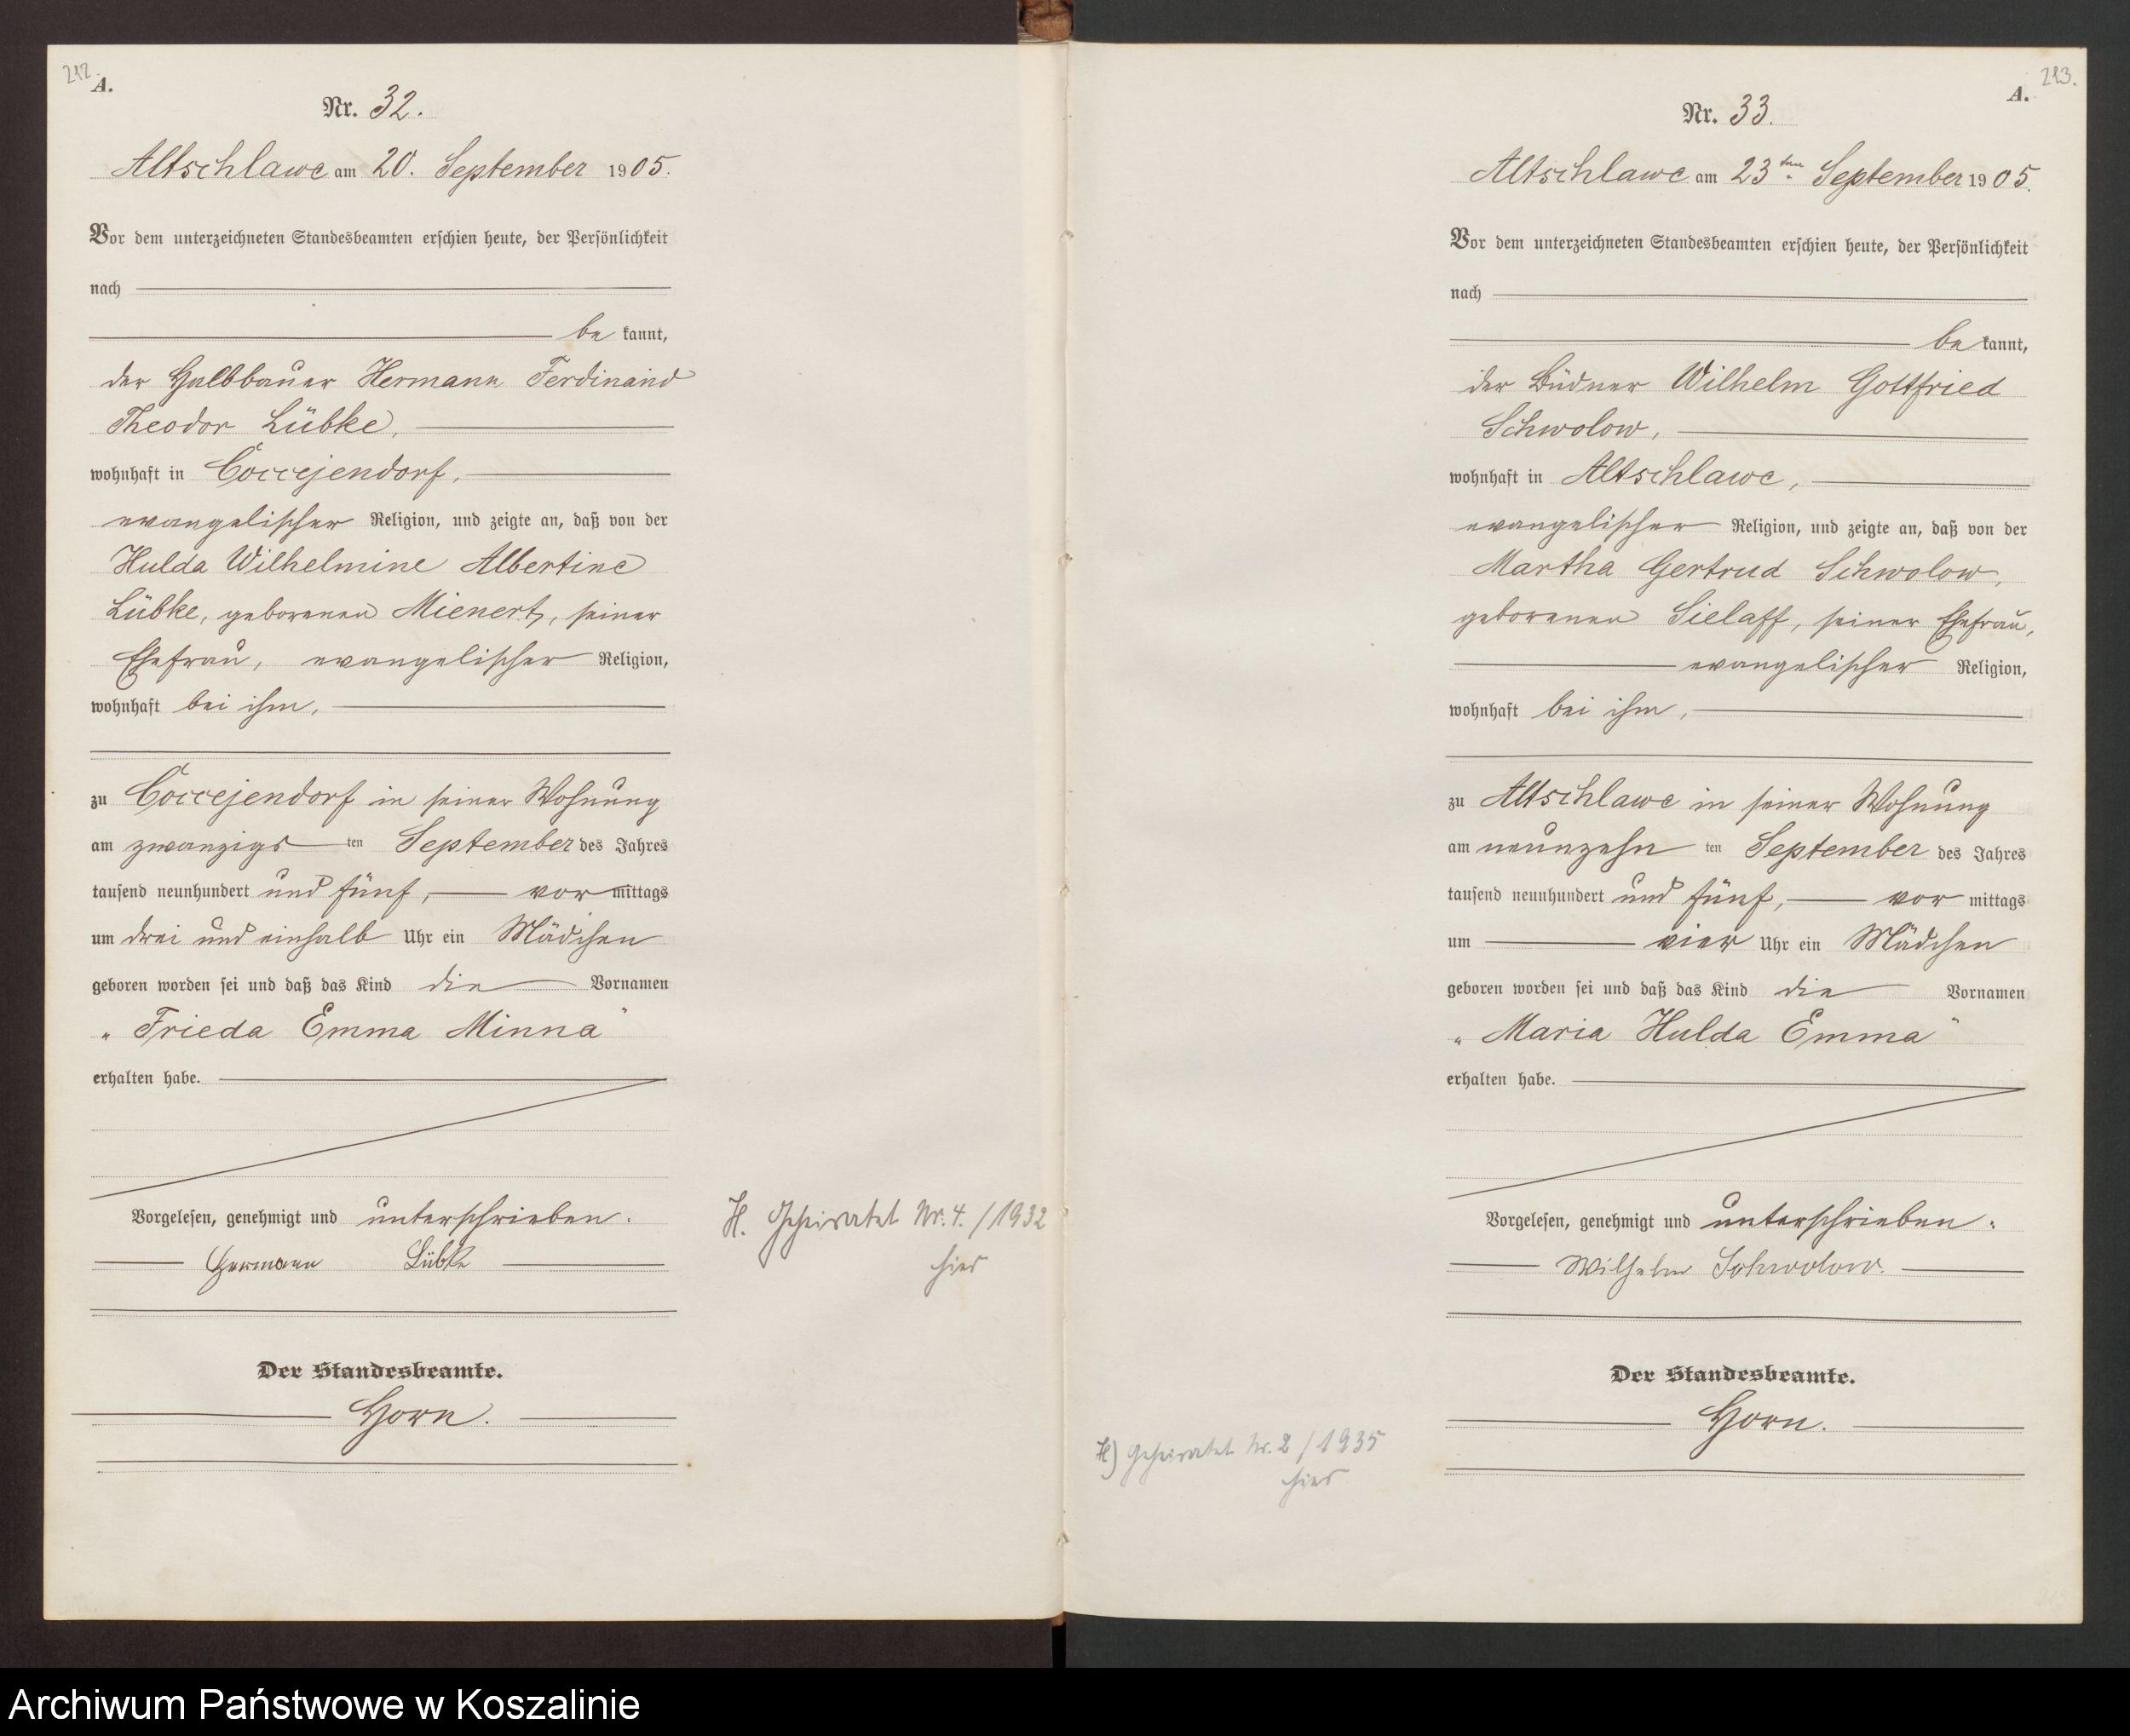 212.
A.
Nr. 32.
Altschlawe am 20. September 1905.
Vor dem unterzeichneten Standesbeamten erschien heute, der Persönlichkeit
nach
be kannt,
der Halbbauer Hermann Ferdinand
Theodor Lübke,
wohnhaft in Coccejendorf,
evangelischer Religion, und zeigte an, daß von der
Hulda Wilhelmine Albertine
Lübke, geborenen Mienert, seiner
Ehefrau, evangelischer Religion,
wohnhaft bei ihm,
zu Coccejendorf in seiner Wohnung
am zwanzigs ten September des Jahres
tausend neunhundert und fünf, vor mittags
um drei und einhalb Uhr ein Mädchen
geboren worden sei und daß das Kind die Vornamen
„Frieda Emma Minna"
erhalten habe.
Vorgelesen, genehmigt und unterschrieben.
Hermann Lübke
Der Standesbeamte.
Horn.
H. Geheiratet Nr. 4./1932
hier
213.
A.
Nr. 33.
Altschlawe am 23ten September 1905.
Vor dem unterzeichneten Standesbeamten erschien heute, der Persönlichkeit
nach
be kannt,
der Büdner Wilhelm Gottfried
Schwolow,
wohnhaft in Altschlawe,
evangelischer Religion, und zeigte an, daß von der
Martha Gertrud Schwolow,
geborenen Sielaff, seiner Ehefrau,
evangelischer Religion,
wohnhaft bei ihm,
zu Altschlawe in seiner Wohnung
am neunzehn ten September des Jahres
tausend neunhundert und fünf, vor mittags
um vier Uhr ein Mädchen
geboren worden sei und daß das Kind die Vornamen
„Maria Hulda Emma"
erhalten habe.
Vorgelesen, genehmigt und unterschrieben.
Wilhelm Schwolow.
Der Standesbeamte.
Horn.
H) Geheiratet Nr. 2/1935
hier
Archiwum Państwowe w Koszalinie